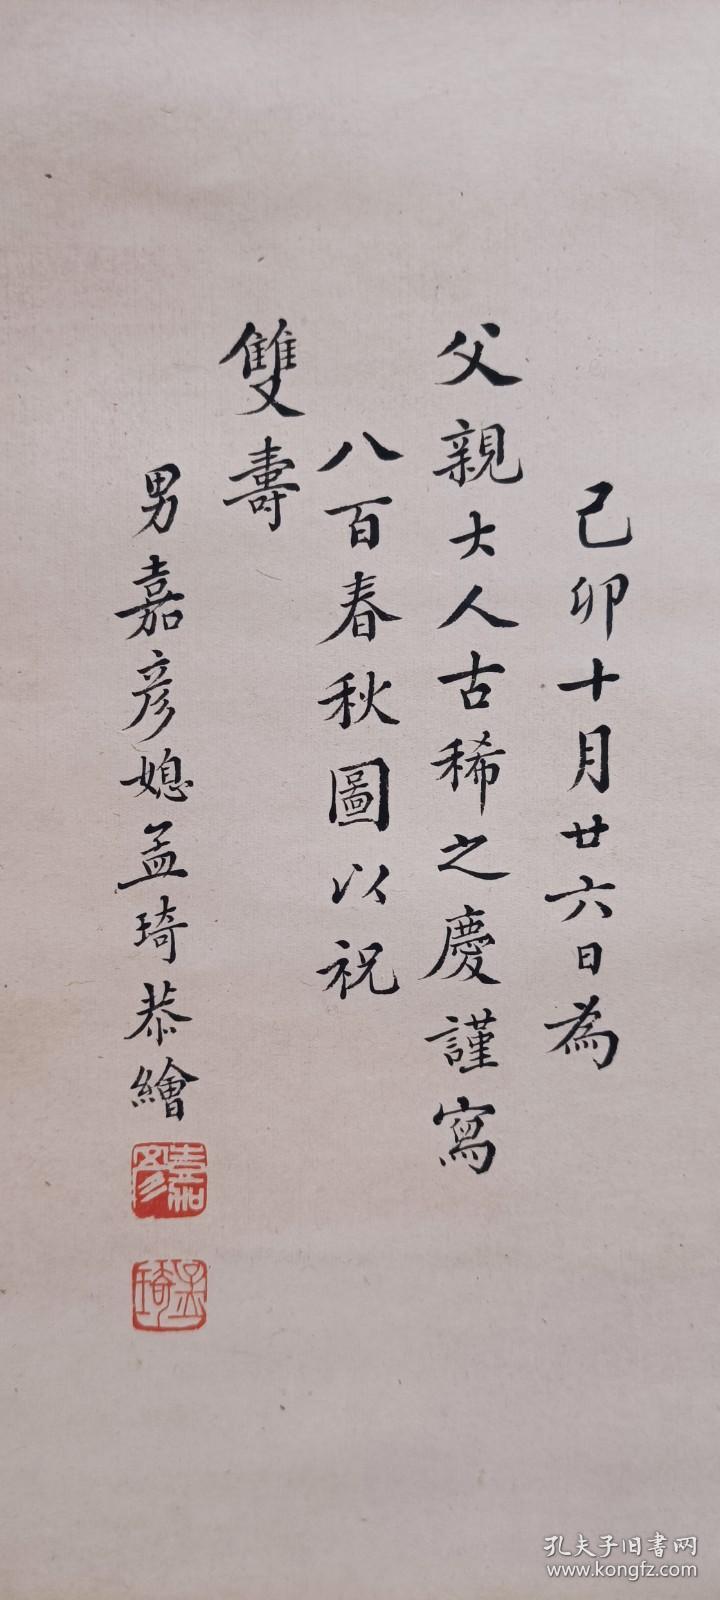 己卯十月廿六日為
父親大人古稀之慶謹寫
八百春秋圖以祝
雙壽
男嘉彦媳孟琦恭繪
嘉彦
孟琦
孔夫子旧书网
www.kongfz.com